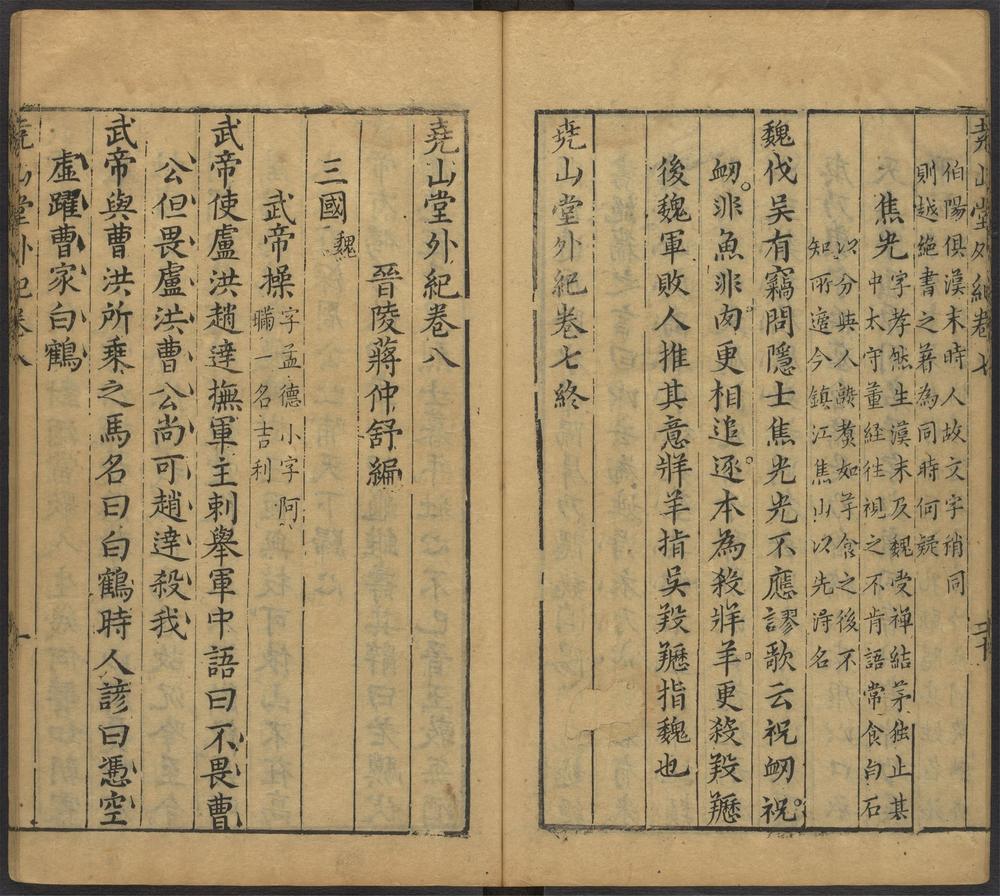 堯山堂外紀卷七
伯陽俱漢末時人故文字稍同
則越絕書之著為同時何疑
焦光
字孝然生漢末及魏受禪結茅独止其
中太守董経往視之不肯語常食白石
以分與人熟煑如芋食之後不
知所適今鎮江焦山以先得名
魏伐吳有竊問隱士焦光光不應謬歌云祝衂祝
衂非魚非肉更相追逐本為殺牂羊更殺羖䍽
後魏軍敗人推其意牂羊指吳羖䍽指魏也
堯山堂外紀卷七終
堯山堂外紀卷八
晉陵蔣仲舒編
三國魏
武帝操
字孟德小字阿
瞞一名吉利
武帝使盧洪趙達撫軍主刺舉軍中語曰不畏曹
公但畏盧洪曹公尚可趙達殺我
武帝與曹洪所乘之馬名曰白鶴時人諺曰憑空
虛躍曹家白鶴
堯山堂外紀卷八
一